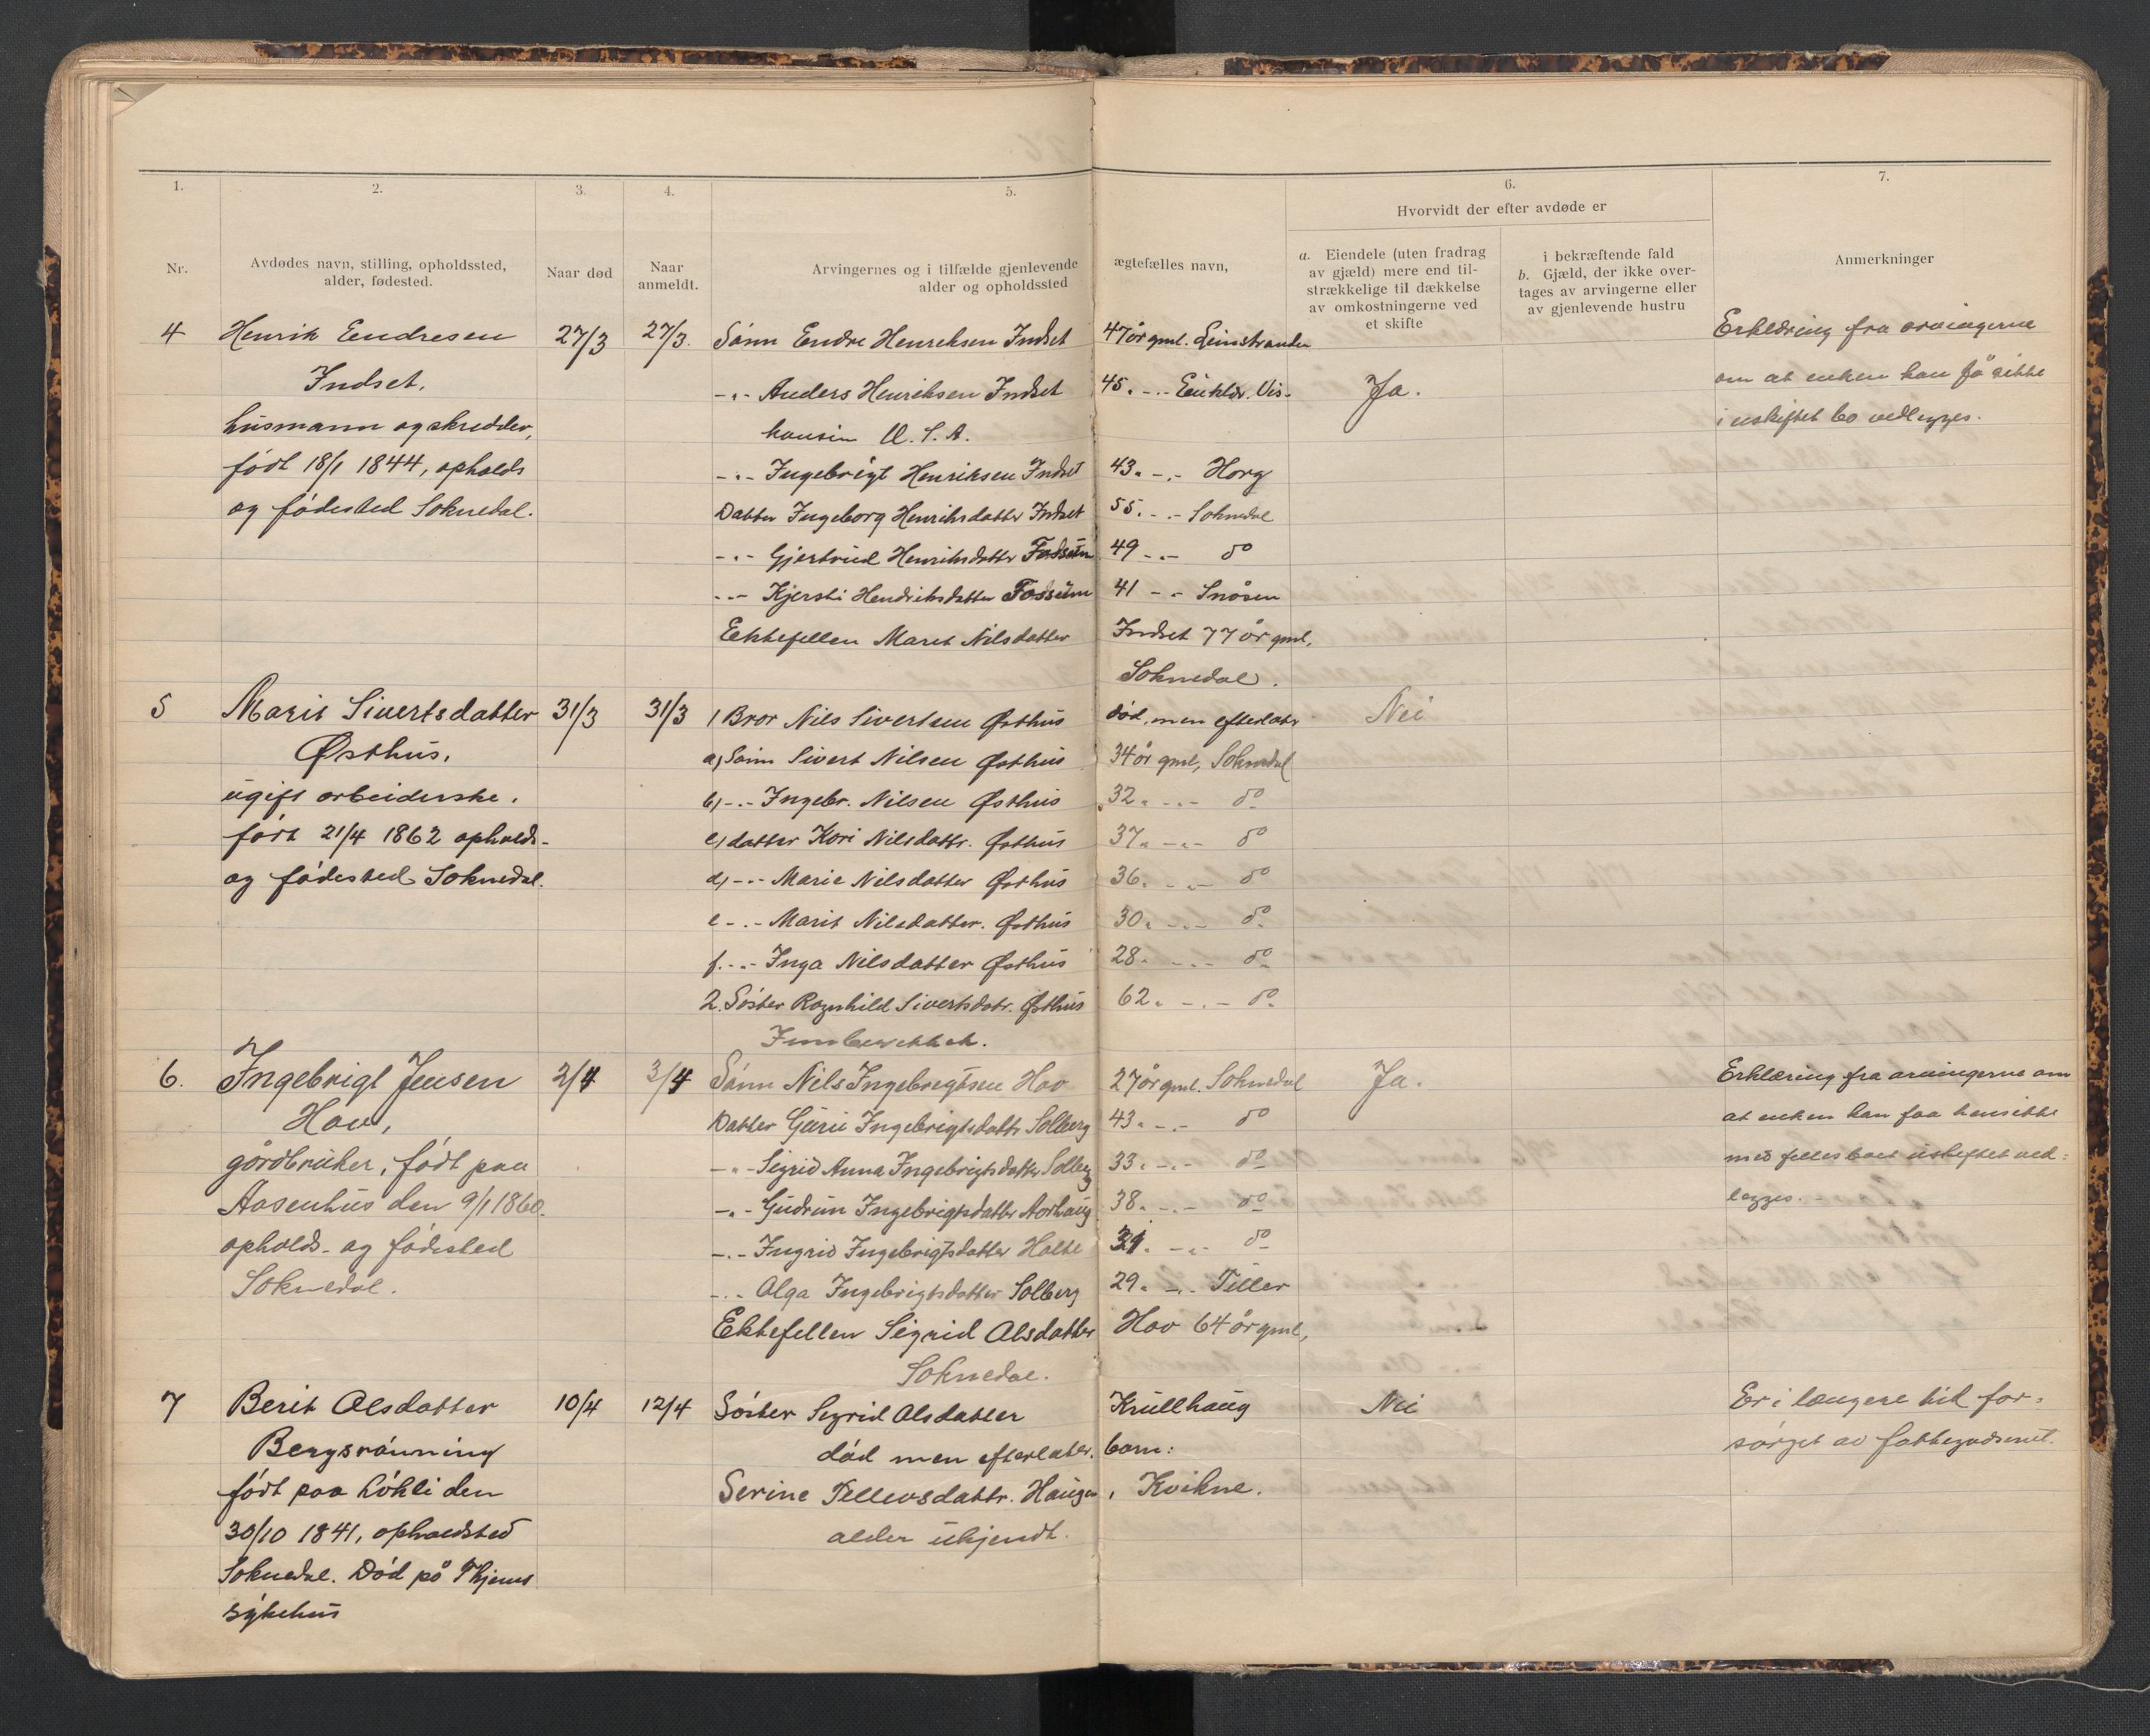 1.
2.
3.
4.
5.
6.
7.
Hvorvidt der efter avdøde er
Nr.
Avdødes navn, stilling, opholdssted,
alder, fødested.
Naar død
Naar
anmeldt.
Arvingernes og i tilfælde gjenlevende ægtefælles navn,
alder og opholdssted
a. Eiendele (uten fradrag
av gjæld) mere end til-
strækkelige til dækkelse
av omkostningerne ved
et skifte
i bekræftende fald
b. Gjæld, der ikke over-
tages av arvingerne eller
av gjenlevende hustru
Anmerkninger
4
Henrik Endresen
Indset.
husmann og skredder,
født 18/1 1844, opholds
og fødested Soknedal.
27/3
27/3.
Sønn Endre Henriksen Indset 47 år gml. Leinstranden
-"- Anders Henriksen Indset 45. -"- Vis-
konsin U.S.A.
-"- Ingebrigt Henriksen Indset 43. -"- Horg
Datter Ingeborg Henriksdatter Indset 55. -"- Soknedal
-"- Gjertrud Henriksdatter Fossum 49 -"- do
-"- Kjersti Hendriksdatter Fossum 41 -"- Snåsen
Ektefellen Marit Nilsdatter Indset 77 år gml.
Soknedal.
Ja.
Erklæring fra arvingerne
om at enken kan få sitte
i uskiftet bo vedlegges.
5
Marit Sivertsdatter
Østhus.
ugift arbeiderske.
født 21/4 1862 opholds-
og fødested Soknedal.
31/3
31/3
1 Bror Nils Sivertsen Østhus død, men efterlatr
a) Sønn Sivert Nilsen Østhus 34 år gml, Soknedal
b) -"- Ingebr. Nilsen Østhus 32. -"- do
c) datter Kari Nilsdattr. Østhus 37. -"- do
d) -"- Marie Nilsdatter Østhus 36. -"- do
e -"- Marit Nilsdatter. Østhus 30. -"- do
f. -"- Inga Nilsdatter Østhus 28. -"- do
2. Søster Ragnhild Sivertsdatr. Østhus 62. -"- do
Nei
6.
Ingebrigt Jensen
Hov,
gårdbruker, født paa
Aasenhus den 9/1 1860.
opholds- og fødested
Soknedal.
2/4
3/4
Sønn Nils Ingebregtsen Hov 27 år gml. Soknedal
Datter Guru Ingebrigtsdattr Solberg 43. -"- do
-"- Sigrid Anna Ingebrigtsdatter Solberg 33. -"- do
-"- Gudrun Ingebrigtsdatter Aorhaug 38. -"- do
-"- Ingrid Ingebrigtsdatter Holte 31. -"- do
-"- Olga Ingebrigtsdatter Solberg 29. -"- Tiller
Ektefellen Sigrid Olsdatter Hov 64 år gml,
Soknedal.
Ja.
Erklæring fra arvingerne om
at enken kan faa hensitte
med fellesboet uskiftet ved=
legges.
7
Berit Olsdatter
Bergsrønning
født paa Løkli den
30/10 1841, opholdsted
Soknedal. Død på Thjems
sykehus
10/4
12/4
Søster Sigrid Olsdatter Krullhaug
død men efterlater. barn:
Serine Tellevsdattr. Haugen, Kvikne.
alder ukjendt.
Nei
Er i lengere tid for=
sørget av fattigvesenet.